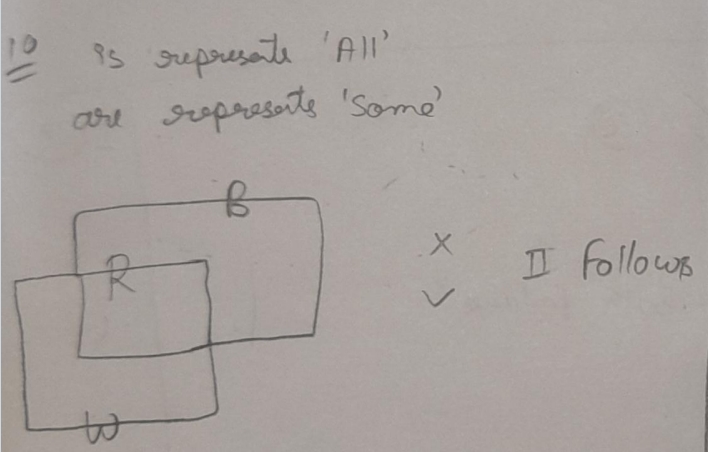 10 is represents 'All'
are represents 'Some'
B
R
X
II follows
✓
W